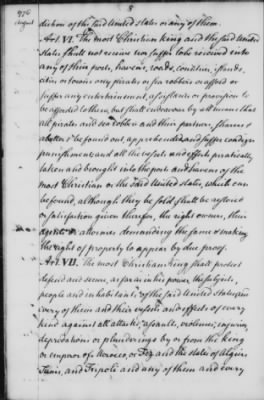 1776
August
8
diction of the said United States or any of them.
Art. VI. The most Christian king and the said United
States shall not receive nor suffer to be received into
any of their ports, havens, roads, countries, islands,
cities or towns any pirates or sea robbers or afford or
suffer any entertainment, assistance or provision to
be afforded to them, but shall endeavour by all means that
all pirates and sea robbers and their partners, sharers &
abettors be found out, apprehended and suffer condign
punishment; and all the vessels and effects piratically
taken and brought into the ports and havens of the
most Christian or the said United States, which can
be found, although they be sold shall be restored
or satisfaction given therefor, the right owners, their
agents or attornies demanding the same & making
the right of property to appear by due proof.
Art. VII. The most Christian King shall protect
defend and secure, as far as in his power, the subjects,
people and inhabitants of the said United States and
every of them and their vessels and effects of every
kind against all attacks, assaults, violences, injuries,
depredations or plunderings by or from the king
or emperor of Morocco, or Fez and the states of Algier
Tunis, and Tripoli and any of them and every